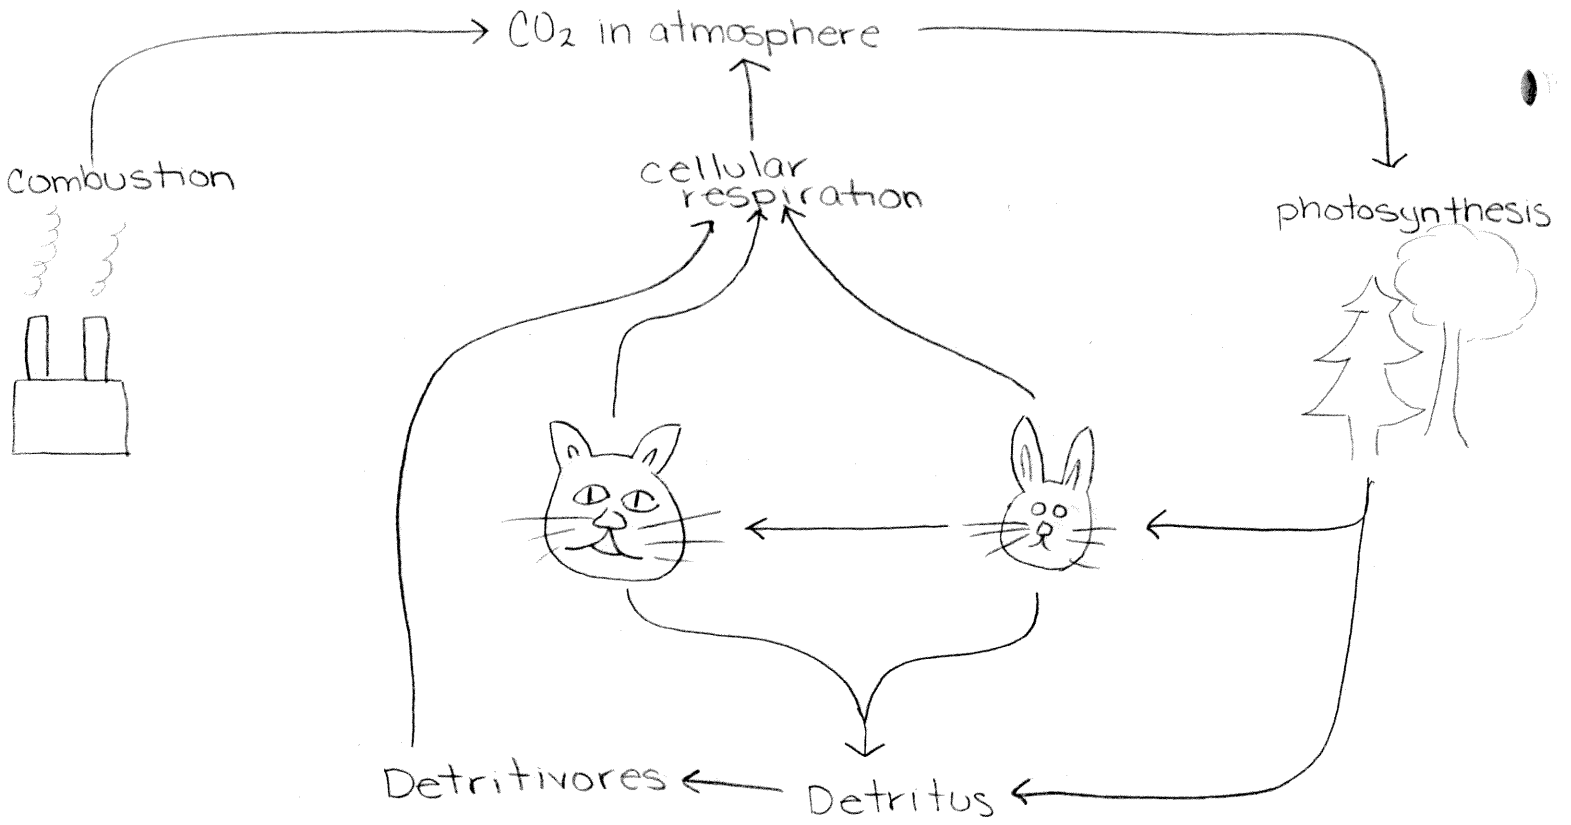 CO₂ in atmosphere
combustion
cellular
respiration
photosynthesis
Detritivores
Detritus